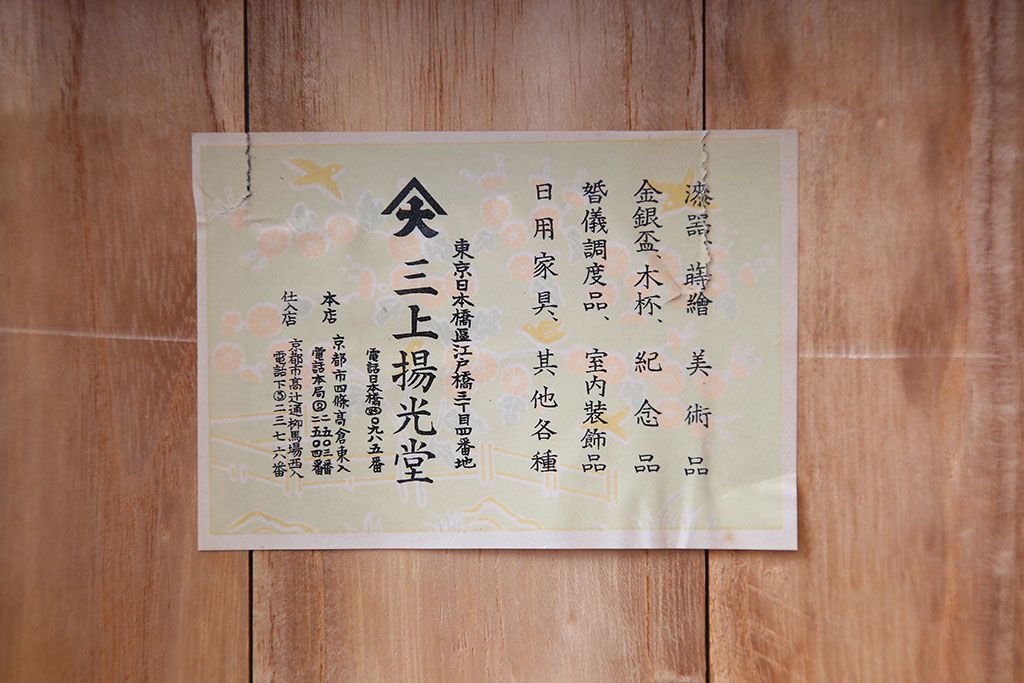 漆器、蒔繪 美術品
金銀盃、木杯、紀念品
婚儀調度品、室内装飾品
日用家具、其他各種
東京日本橋區江戸橋三丁目四番地
大 三上揚光堂
電話日本橋㈣〇九八五番
本店 京都市四條高倉東入
電話本局②二五〇三番
二五〇四番
仕入店 京都市高辻通柳馬場西入
電話下⑤二三七六番